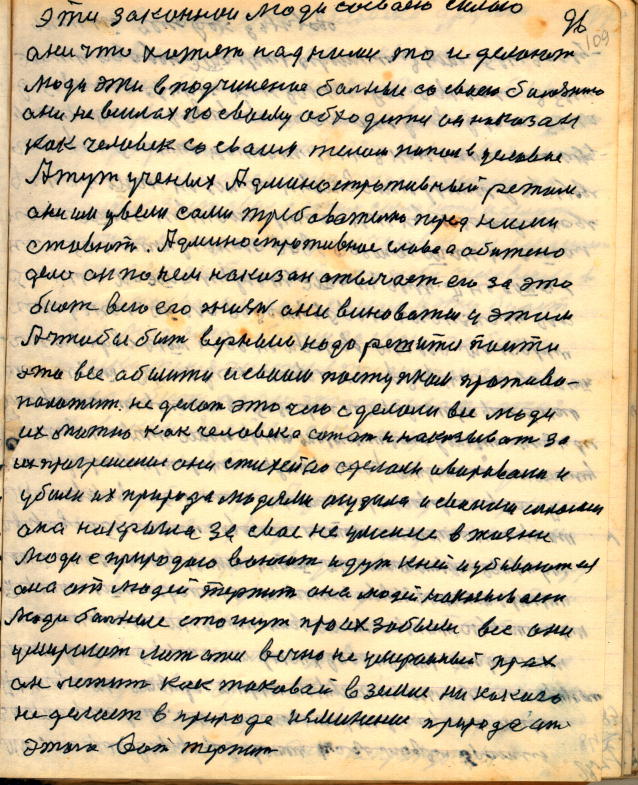 Эти законной люди своею силою
96
109
они что хотят над ними то и делают
люди эти в подчинение больные со своею болезнию
они не в силах по своему обходити он наказан
как человек со своим телом попал в условие
А тут ученых Административный режим
они им ввели сами требователно перед ними
ставют. Административное слово а обижено
дело он по нем наказан отвычает его за это
бьют в его жизн они виноваты у этим
А чтобы быт верными надо режити пойти
это все обойти и своим поступкам противо-
положит не делат это чего сделали все люди
их можно как человека и наказыват за
их прогрешение они стихейно сделали и воровали и
убили их природа людями осудила и своими силами
она накрыла за свое не умение в жизни
люди с природою воюют идут к ней и убивают ея
она от людей терпит она людей наказывает
люди больные стогнут про их забыли все они
умирают лежати вечно не умераный прах
он лежит как таковай в земле ни какого
не делает в природе изминение природа от
этого Вой терпит